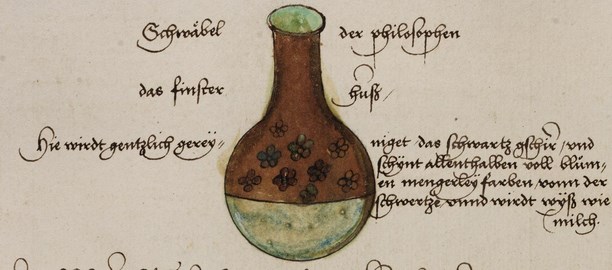 Schwäbel der philosophen
das finster huß /
Hie wirdt gentzlich gerey= niget das schwartz gschir / vnd
schynt allenthalben voll blům=
en mengerley farben vonn der
schwertze vnnd wirdt wyß wie
milch.